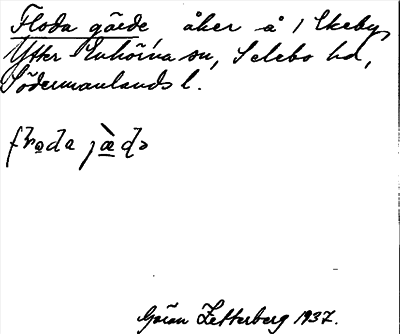 Floda gärde, åker å 1 Ekeby,
Ytter Enhörna sn, Selebo hd,
Södermanlands l.
Göran Zetterberg 1937.